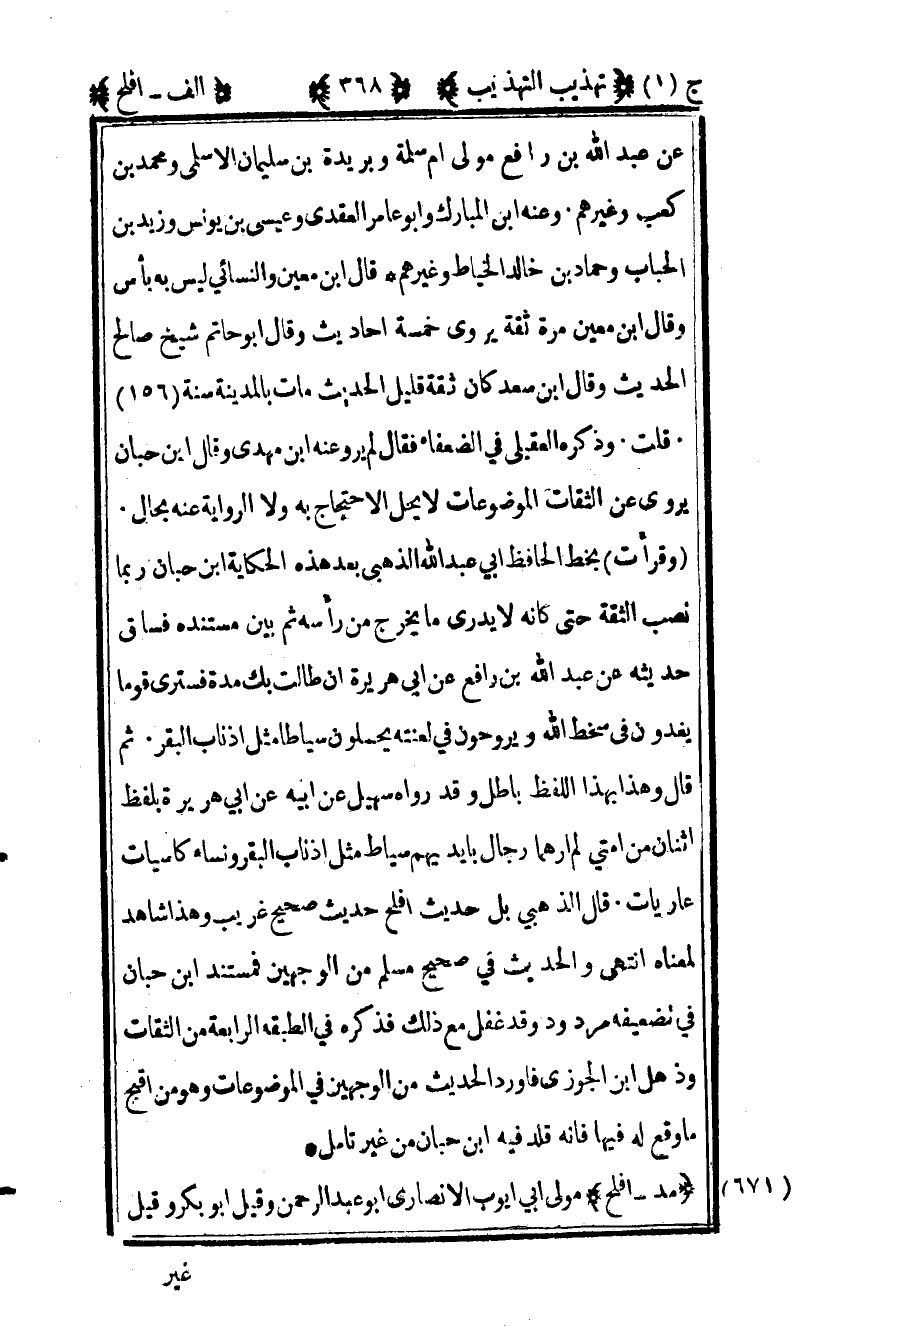 ج (١) ﴿ تهذيب التهذيب ﴾ ﴿ ٣٦٨ ﴾ ﴿ الف ـ افلح ﴾
عن عبد الله بن رافع مولى ام سلمة و بريدة بن سليمان الاسلمى و محمد بن
كعب وغيرهم · وعنه ابن المبارك وابو عامر العقدى وعيسى بن يونس وزيد بن
الحباب وحماد بن خالد الخياط وغيرهم • قال ابن معين والنسائي ليس به بأس
وقال ابن معين مرة ثقة يروى خمسة احاديث وقال ابو حاتم شيخ صالح
الحديث وقال ابن سعد كان ثقة قليل الحديث مات بالمدينة سنة (١٥٦)
· قلت · وذكره العقيلى في الضعفاء فقال لم يرو عنه ابن مهدى وقال ابن حبان
يروى عن الثقات الموضوعات لا يحل الاحتجاج به ولا الرواية عنه بحال ·
(وقرأت) بخط الحافظ ابي عبد الله الذهبى بعد هذه الحكاية ابن حبان ربما
نصب الثقة حتى كانه لا يدرى ما يخرج من رأسه ثم بين مستنده فساق
حديثه عن عبد الله بن رافع عن ابي هريرة ان طالت بك مدة فسترى قوما
يغدون فى سخط الله ويروحون في لعنته يحملون سياطا مثل اذناب البقر · ثم
قال وهذا بهذا اللفظ باطل و قد رواه سهيل عن ابيه عن ابي هريرة بلفظ
اثنان من امتي لم ارهما رجال بايديهم سياط مثل اذناب البقر ونساء كاسيات
عاريات · قال الذهبي بل حديث افلح حديث صحيح غريب وهذا شاهد
لمعناه انتهى والحديث في صحيح مسلم من الوجهين فمستند ابن حبان
في تضعيفه مردود وقد غفل مع ذلك فذكره في الطبقه الرابعة من الثقات
وذهل ابن الجوزى فاورد الحديث من الوجهين في الموضوعات وهو من اقبح
ما وقع له فيها فانه قلد فيه ابن حبان من غير تامل •
﴿ مد ـ افلح ﴾ مولى ابي ايوب الانصارى ابو عبد الرحمن وقيل ابو بكر و قيل
(٦٧١)
غير